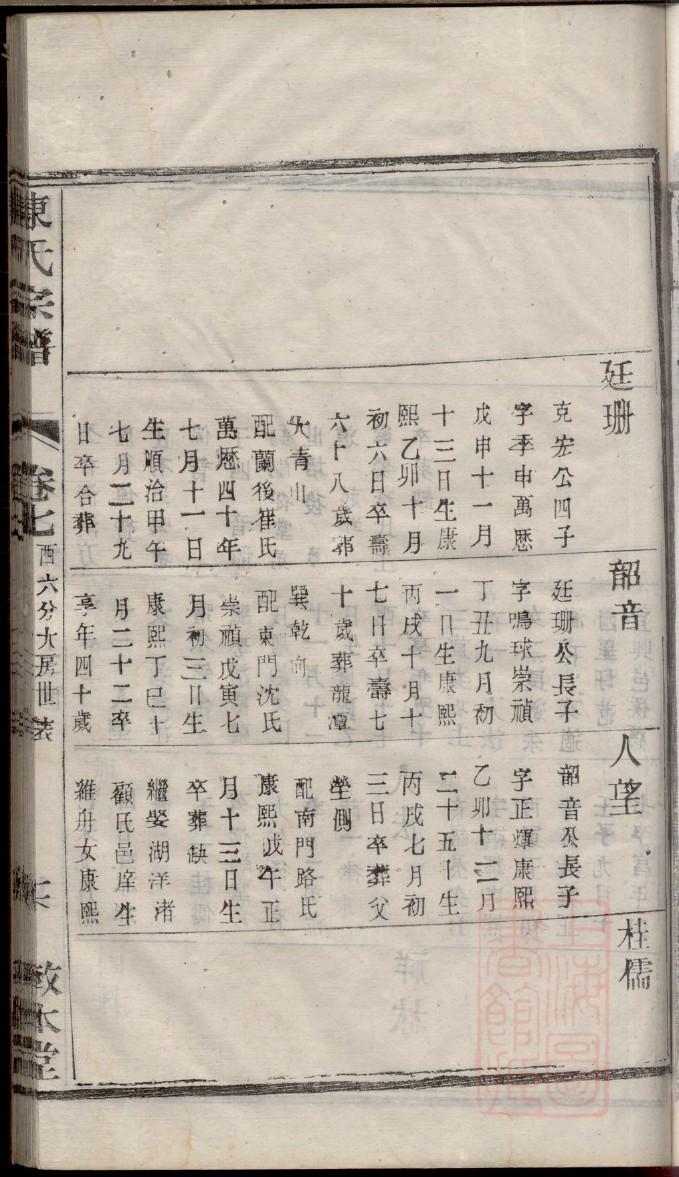 廷珊
克宏公四子
字季申萬厯
戊申十一月
十三日生康
熙乙卯十月
初六日卒壽
六十八歲葬
大青山
配蘭後崔氏
萬厯四十年
七月十一日
生順治甲午
七月二十九
日卒合葬
韶音
廷珊公長子
字鳴球崇禎
丁丑九月初
一日生康熙
丙戌十月十
七日卒壽七
十歲葬龍潭
巽乾向
配東門沈氏
崇禎戊寅七
月初三日生
康熙丁巳十
月二十二卒
享年四十歲
人望
韶音公長子
字正燿康熙
乙卯十二月
二十五日生
丙戌七月初
三日卒葬父
塋側
配南門路氏
康熙戊午正
月十三日生
卒葬缺
繼娶湖洋渚
顧氏邑庠生
維舟女康熙
桂儒
氏宗譜
卷七
酉六分大房世表
敦本堂